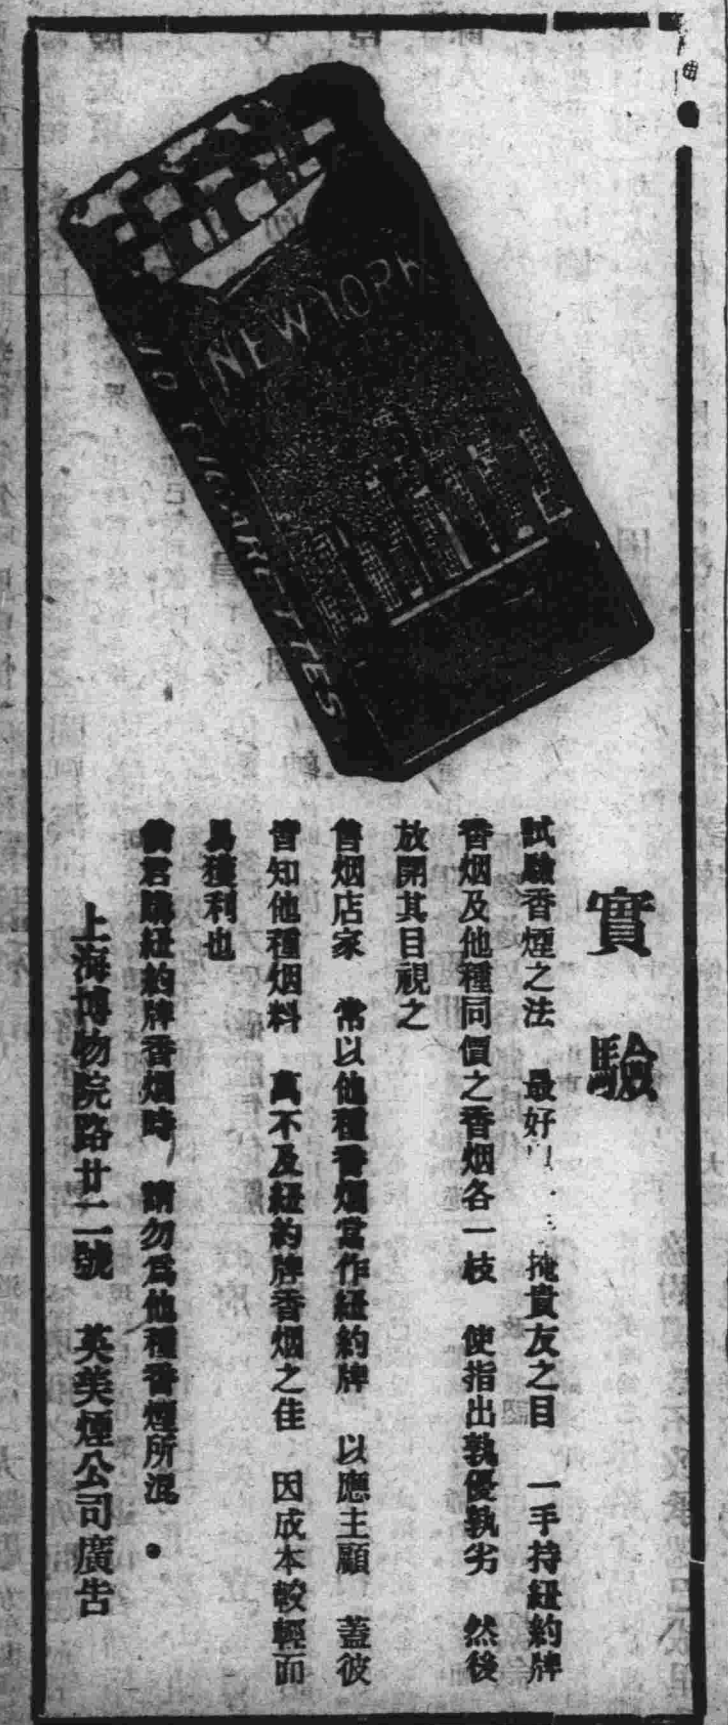 NEW YORK
10 CIGARETTES
實驗
試驗香煙之法 最好以 掩貴友之目 一手持紐約牌
香烟及他種同價之香烟各一枝 使指出孰優孰劣 然後
放開其目視之
售烟店家 常以他種香烟當作紐約牌 以應主顧 蓋彼
皆知他種烟料 萬不及紐約牌香烟之佳 因成本較輕而
易獲利也
倘君購紐約牌香烟時 請勿爲他種香煙所混 ●
上海博物院路廿二號 英美煙公司廣告